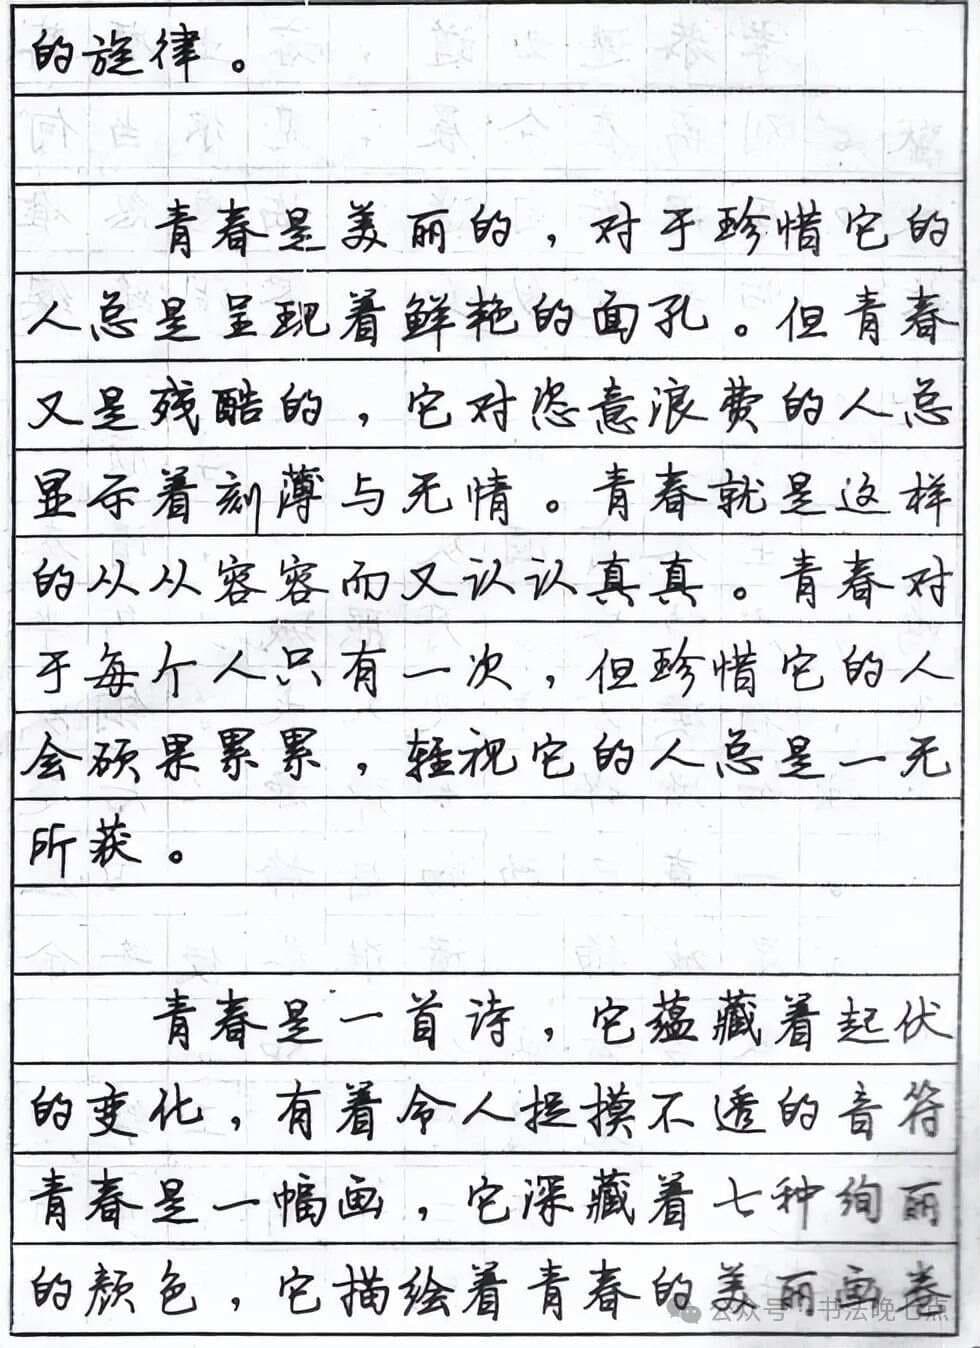 的旋律。
青春是美丽的，对于珍惜它的
人总是呈现着鲜艳的面孔。但青春
又是残酷的，它对恣意浪费的人总
显示着刻薄与无情。青春就是这样
的从从容容而又认认真真。青春对
于每个人只有一次，但珍惜它的人
会硕果累累，轻视它的人总是一无
所获。
青春是一首诗，它蕴藏着起伏
的变化，有着令人捉摸不透的音符
青春是一幅画，它深藏着七种绚丽
的颜色，它描绘着青春的美丽画卷
公众号·书法晚七点